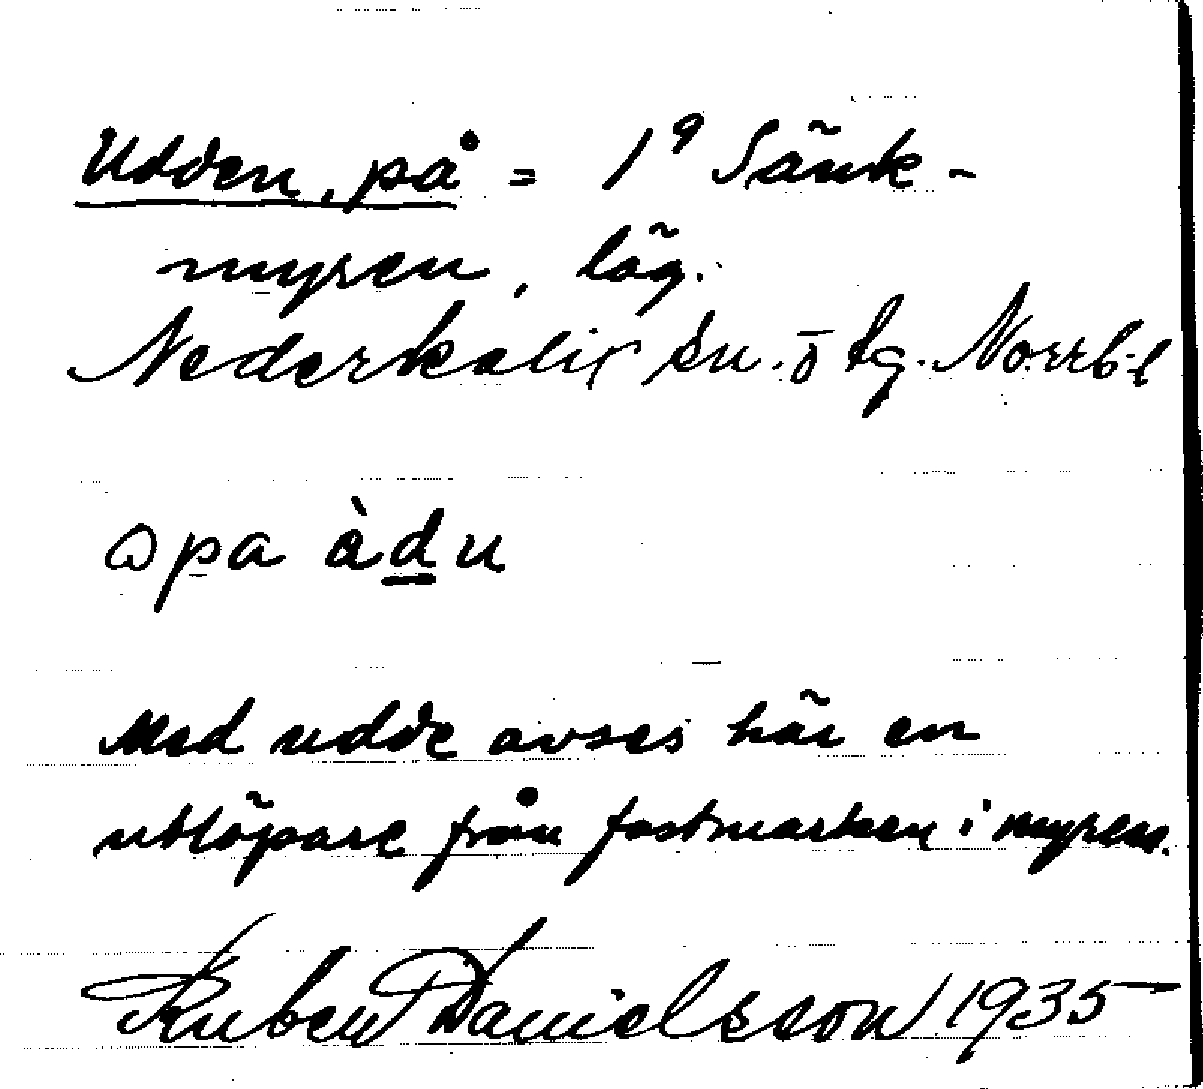 Udden, på = 1º Sänk-
myren, läg.
Nederkalix sn. ö tg. Norrb. l
ɷpa àdu
Med udde avses här en
utlöpare från fastmarken i myren.
Ruben Danielsson 1935